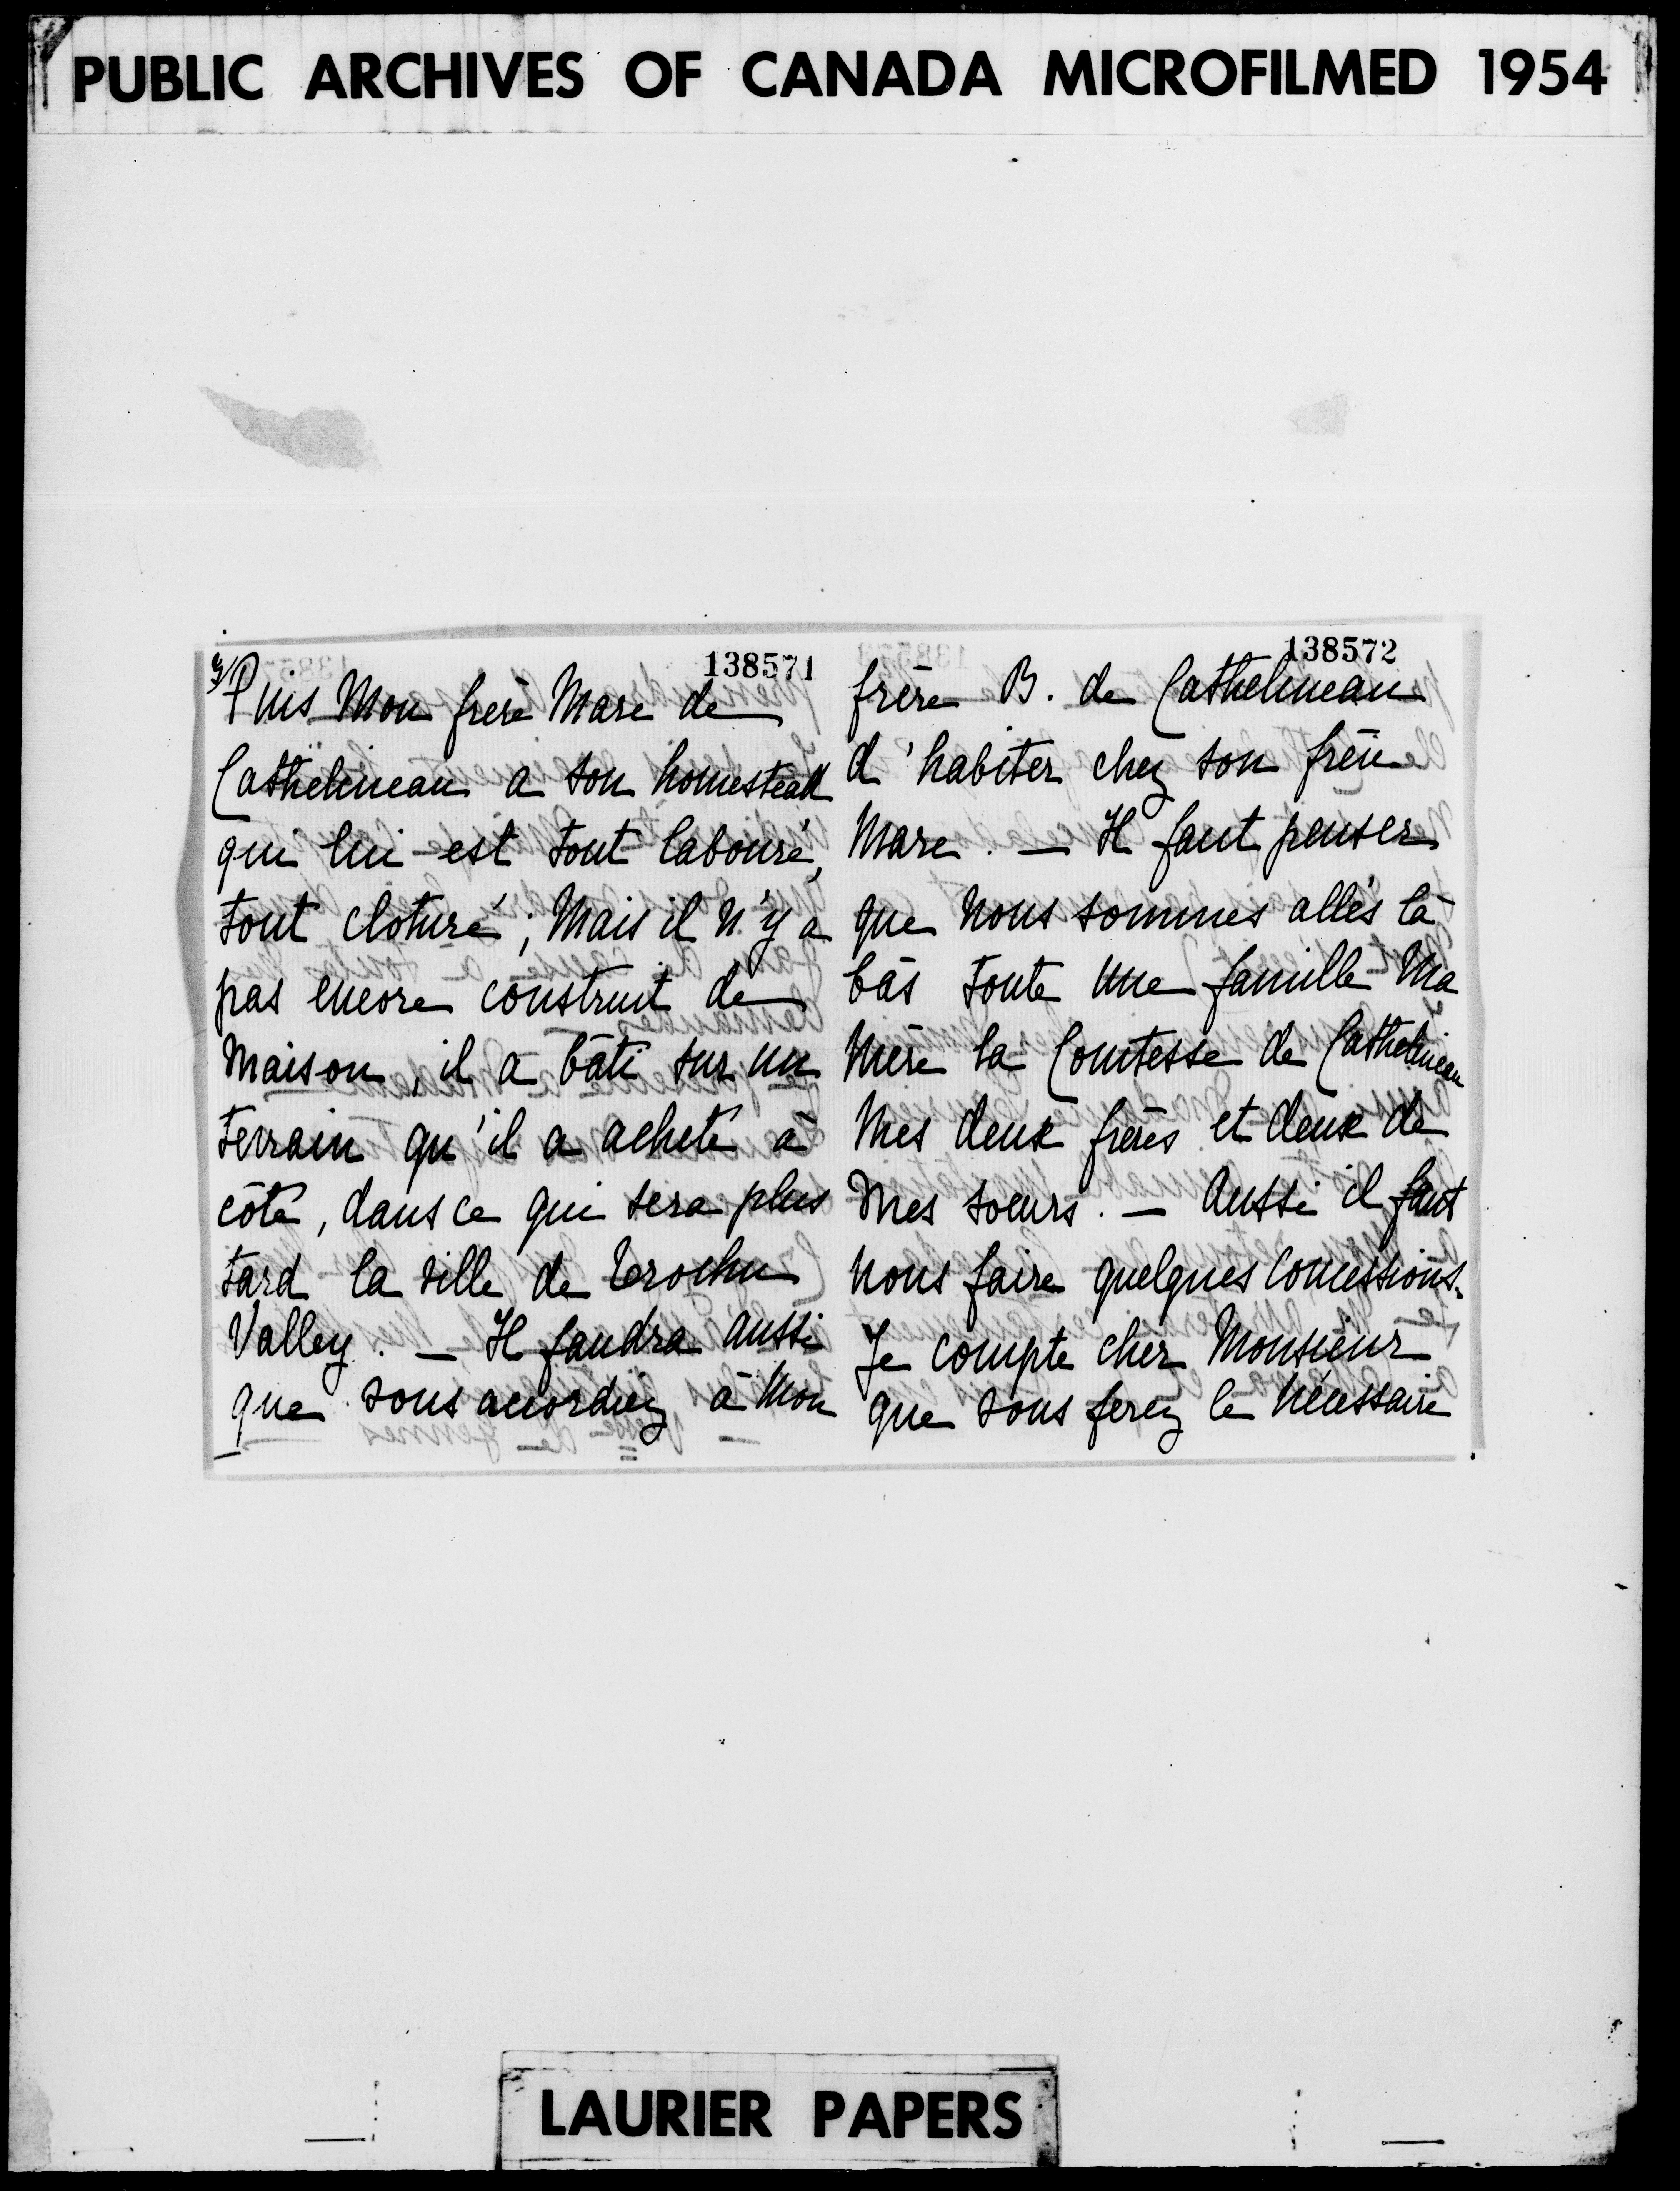 PUBLIC ARCHIVES OF CANADA MICROFILMED 1954
138571
3/ Puis Mon frère Marc de
Cathelineau a son homestead
qui lui est tout labouré,
tout cloturé ; Mais il n'y a
pas encore construit de
Maison, il a bâti sur un
terrain qu'il a acheté à
côté, dans ce qui sera plus
tard la ville de Trochu
Valley. — Il faudra aussi
que vous accordiez à Mon
138572
frère B. de Cathelineau
d'habiter chez son frère
Marc. — Il faut penser
que nous sommes allés là
bàs toute une famille Ma
Mère la Comtesse de Cathelineau
Mes deux frères et deux de
Mes soeurs. — Aussi il faut
nous faire quelques concessions.
Je compte cher Monsieur
que vous ferez le nécessaire
LAURIER PAPERS